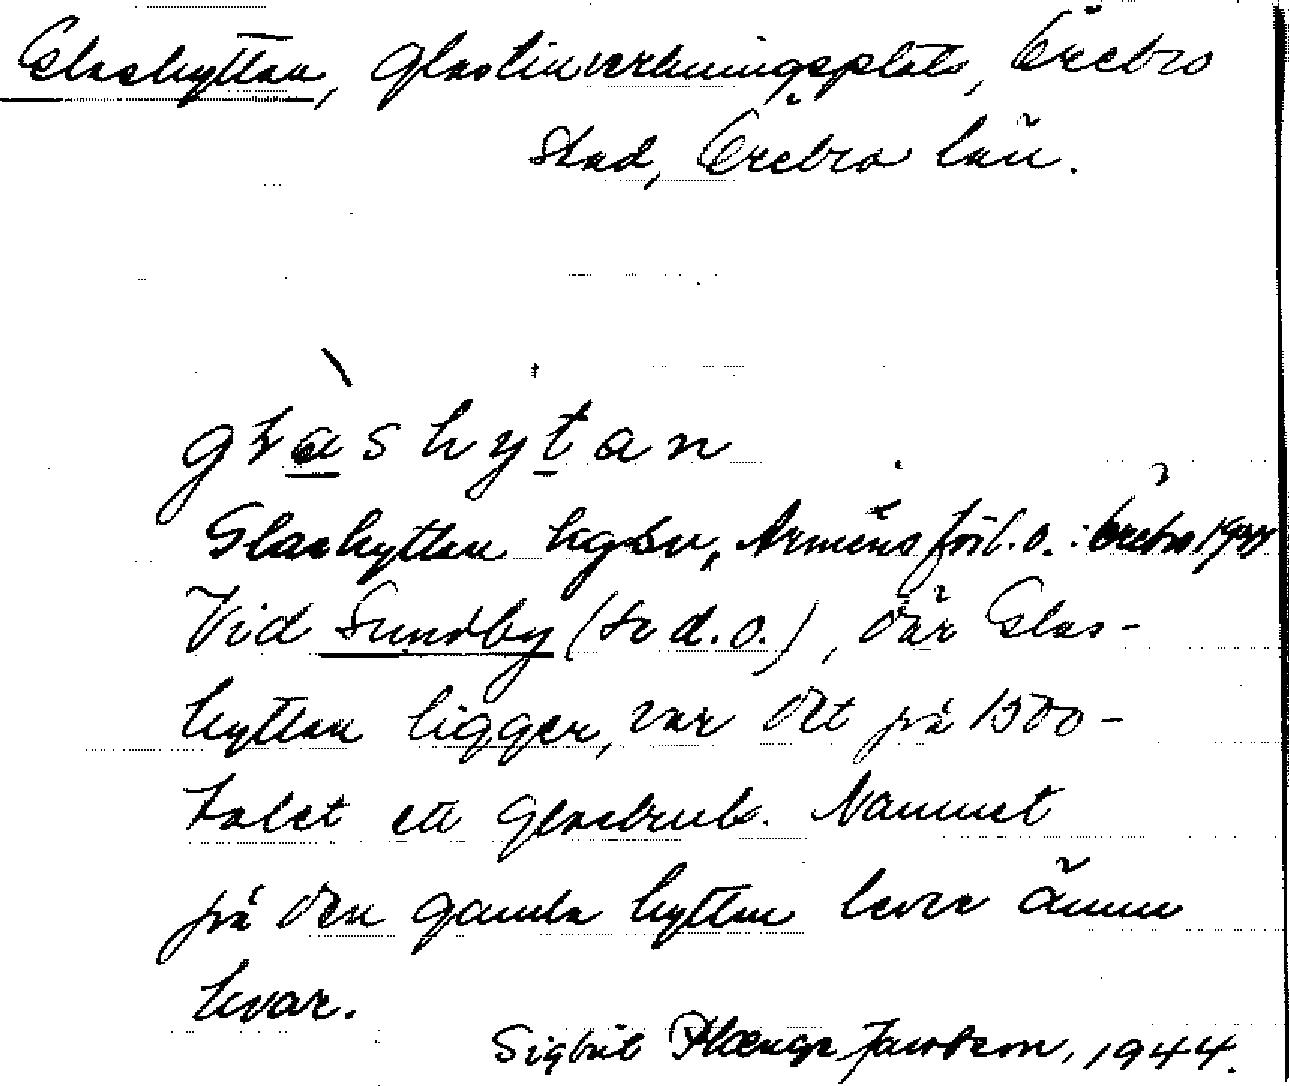 Glashyttan, Glastillverkningsplats, Örebro
stad, Örebro län.
glàshytan
Glashyttan hgsv, Arméns förl. o. : Örebro 1944
Vid Sundby (se d.o.), där Glas-
hyttan ligger, var det på 1500-
talet ett glasbruk. Namnet
på den gamla hyttan lever ännu
kvar.
Sigbrit Plænge Jacobson, 1944.